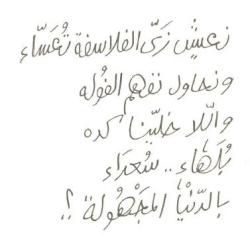 نعيش زىّ الفلاسفة تُعَسَاء
ونحاول نفهم الفُوله
واللا خلّينا كده
بُلَهَاء .. سُعَدَاء
بالدّنْيا المجْهُولة ؟!